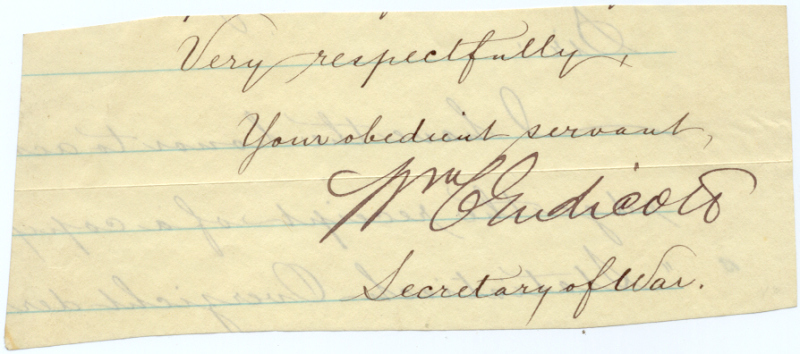 Very respectfully,
Your obedient servant,
Wm C Endicott
Secretary of War.